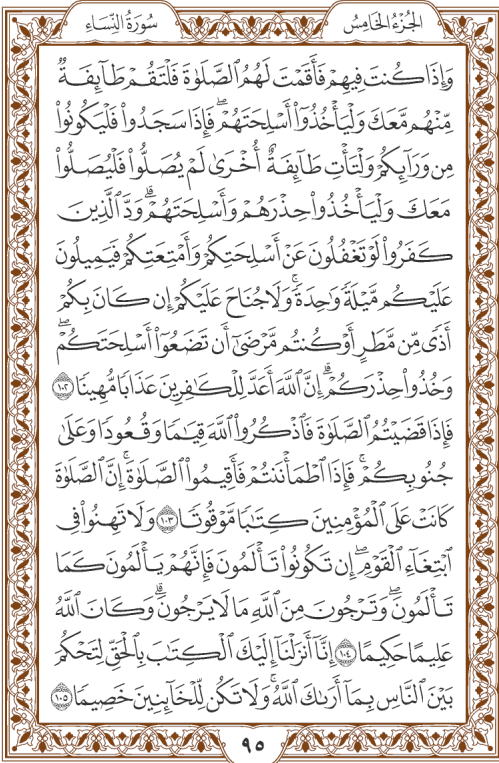 الجُزْءُ الخَامِسُ
سُورَةُ النِّسَاءِ
وَإِذَا كُنتَ فِيهِمْ فَأَقَمْتَ لَهُمُ ٱلصَّلَوٰةَ فَلْتَقُمْ طَآئِفَةٌ
مِّنْهُم مَّعَكَ وَلْيَأْخُذُوٓا۟ أَسْلِحَتَهُمْ ۖ فَإِذَا سَجَدُوا۟ فَلْيَكُونُوا۟
مِن وَرَآئِكُمْ وَلْتَأْتِ طَآئِفَةٌ أُخْرَىٰ لَمْ يُصَلُّوا۟ فَلْيُصَلُّوا۟
مَعَكَ وَلْيَأْخُذُوا۟ حِذْرَهُمْ وَأَسْلِحَتَهُمْ ۗ وَدَّ ٱلَّذِينَ
كَفَرُوا۟ لَوْ تَغْفُلُونَ عَنْ أَسْلِحَتِكُمْ وَأَمْتِعَتِكُمْ فَيَمِيلُونَ
عَلَيْكُم مَّيْلَةً وَٰحِدَةً ۚ وَلَا جُنَاحَ عَلَيْكُمْ إِن كَانَ بِكُمْ
أَذًى مِّن مَّطَرٍ أَوْ كُنتُم مَّرْضَىٰٓ أَن تَضَعُوٓا۟ أَسْلِحَتَكُمْ ۖ
وَخُذُوا۟ حِذْرَكُمْ ۗ إِنَّ ٱللَّهَ أَعَدَّ لِلْكَـٰفِرِينَ عَذَابًا مُّهِينًا ١٠٢
فَإِذَا قَضَيْتُمُ ٱلصَّلَوٰةَ فَٱذْكُرُوا۟ ٱللَّهَ قِيَـٰمًا وَقُعُودًا وَعَلَىٰ
جُنُوبِكُمْ ۚ فَإِذَا ٱطْمَأْنَنتُمْ فَأَقِيمُوا۟ ٱلصَّلَوٰةَ ۚ إِنَّ ٱلصَّلَوٰةَ
كَانَتْ عَلَى ٱلْمُؤْمِنِينَ كِتَـٰبًا مَّوْقُوتًا ١٠٣ وَلَا تَهِنُوا۟ فِى
ٱبْتِغَآءِ ٱلْقَوْمِ ۖ إِن تَكُونُوا۟ تَأْلَمُونَ فَإِنَّهُمْ يَأْلَمُونَ كَمَا
تَأْلَمُونَ ۖ وَتَرْجُونَ مِنَ ٱللَّهِ مَا لَا يَرْجُونَ ۗ وَكَانَ ٱللَّهُ
عَلِيمًا حَكِيمًا ١٠٤ إِنَّآ أَنزَلْنَآ إِلَيْكَ ٱلْكِتَـٰبَ بِٱلْحَقِّ لِتَحْكُمَ
بَيْنَ ٱلنَّاسِ بِمَآ أَرَىٰكَ ٱللَّهُ ۚ وَلَا تَكُن لِّلْخَآئِنِينَ خَصِيمًا ١٠٥
٩٥